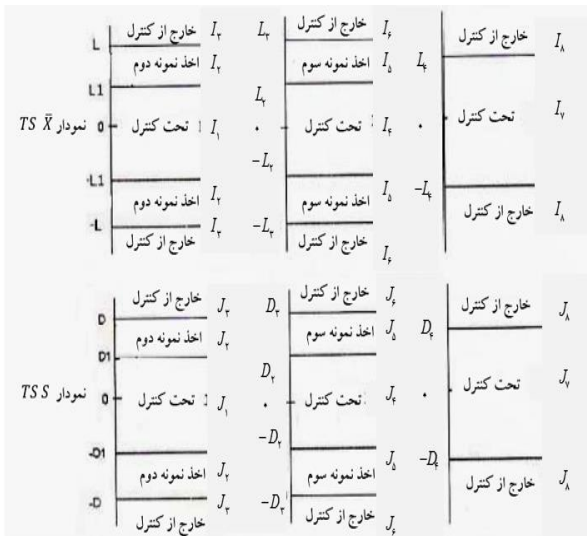 نمودار TS X̄
L
L1
0
-L1
-L
خارج از کنترل I۳
اخذ نمونه دوم I۲
تحت کنترل I۱
اخذ نمونه دوم I۲
خارج از کنترل I۳
L۳
L۲
۰
-L۲
-L۳
خارج از کنترل I۶
اخذ نمونه سوم I۵
تحت کنترل I۴
اخذ نمونه سوم I۵
خارج از کنترل I۶
L۴
۰
-L۴
خارج از کنترل I۸
تحت کنترل I۷
خارج از کنترل I۸
نمودار TS S
D
D1
0
-D1
-D
خارج از کنترل J۳
اخذ نمونه دوم J۲
تحت کنترل J۱
اخذ نمونه دوم J۲
خارج از کنترل J۳
D۳
D۲
۰
-D۲
-D۳
خارج از کنترل J۶
اخذ نمونه سوم J۵
تحت کنترل J۴
اخذ نمونه سوم J۵
خارج از کنترل J۶
D۴
۰
-D۴
خارج از کنترل J۸
تحت کنترل J۷
خارج از کنترل J۸